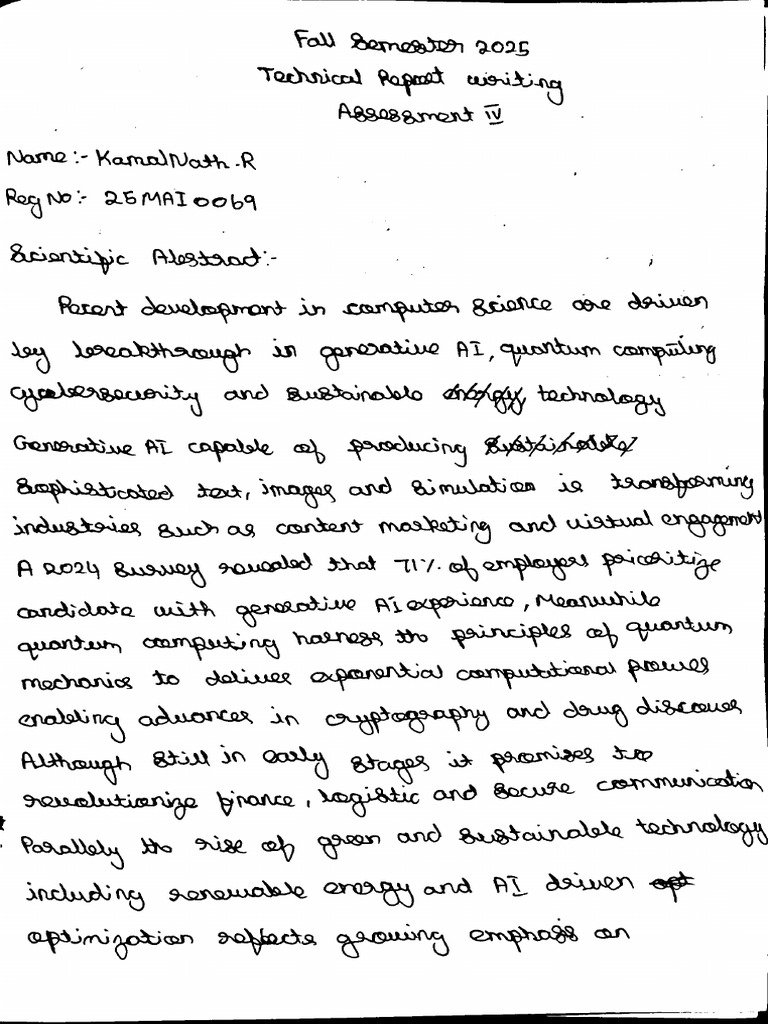 Fall Semester 2025
Technical Report writing
Assessment IV
Name:- KamalNath.R
Reg No:- 25MAI0069
Scientific Abstract:-
Recent development in computer science are driven
by breakthrough in generative AI, quantum computing
cybersecurity and sustainable technology
Generative AI capable of producing
sophisticated text, images and simulation is transforming
industries such as content marketing and virtual engagement
A 2024 survey revealed that 71% of employers prioritize
candidate with generative AI experience, Meanwhile
quantum computing harness the principles of quantum
mechanics to deliver exponential computitional powers
enabling advances in cryptography and drug discover
Although still in early stages it promises to
revolutionize finance, logistic and secure communication
Parallely the rise of green and sustainable technology
including renewable energy and AI driven
optimization reflects growing emphasis on